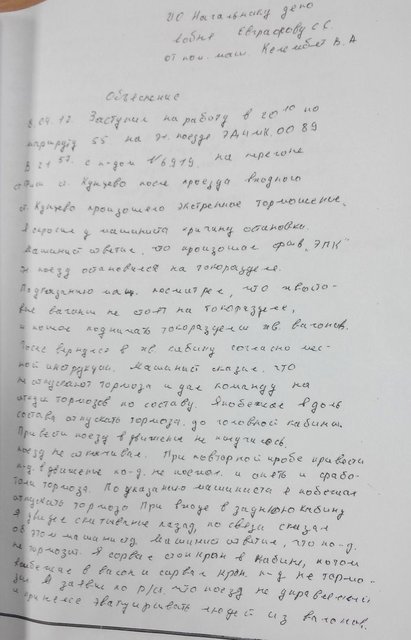 И.О. Начальнику депо
Лобня Евграфову С.С.
от пом. маш. В. А
Объяснение
8.04.12. Заступил на работу в 20 10 по
маршруту 55 на эл. поезде ЭД4МК 0089
В 21 57 с п-дом № 6919 на перегоне
Фили ст. Кунцево после проезда входного
ст. Кунцево произошло экстренное торможение.
Я спросил у машиниста причину остановки.
Машинист ответил, что произошел срыв "ЭПК"
поезд остановился на токоразделе.
По указанию маш. посмотрел, что хвосто-
вые вагоны не стоят на токоразделе,
и можно поднимать токоразделы хв. вагонов.
После вернулся в хв. кабину согласно мес-
ной инструкции. Машинист сказал, что
не отпускают тормоза и дал команду на
отпуск тормозов по составу. Я побежал вдоль
состава отпускать тормоза до головной кабины.
Привести поезд в движение не получилось.
поезд не откачивал. При повторной пробе привести
п-д. в движение п-д. не поехал и опять
тормоза. По указанию машиниста я побежал
отпускать тормоза При входе в заднюю кабину
Я увидел скатывание назад, по связи сказал
об этом машинисту. Машинист ответил, что п-д.
не тормозит. Я сорвал стоп кран в кабине, потом
выбежал в вагон и сорвал кран п-д не тормо-
зил Я заявил по р/с что поезд не управляемый
и принялся эвакуировать людей из вагонов.